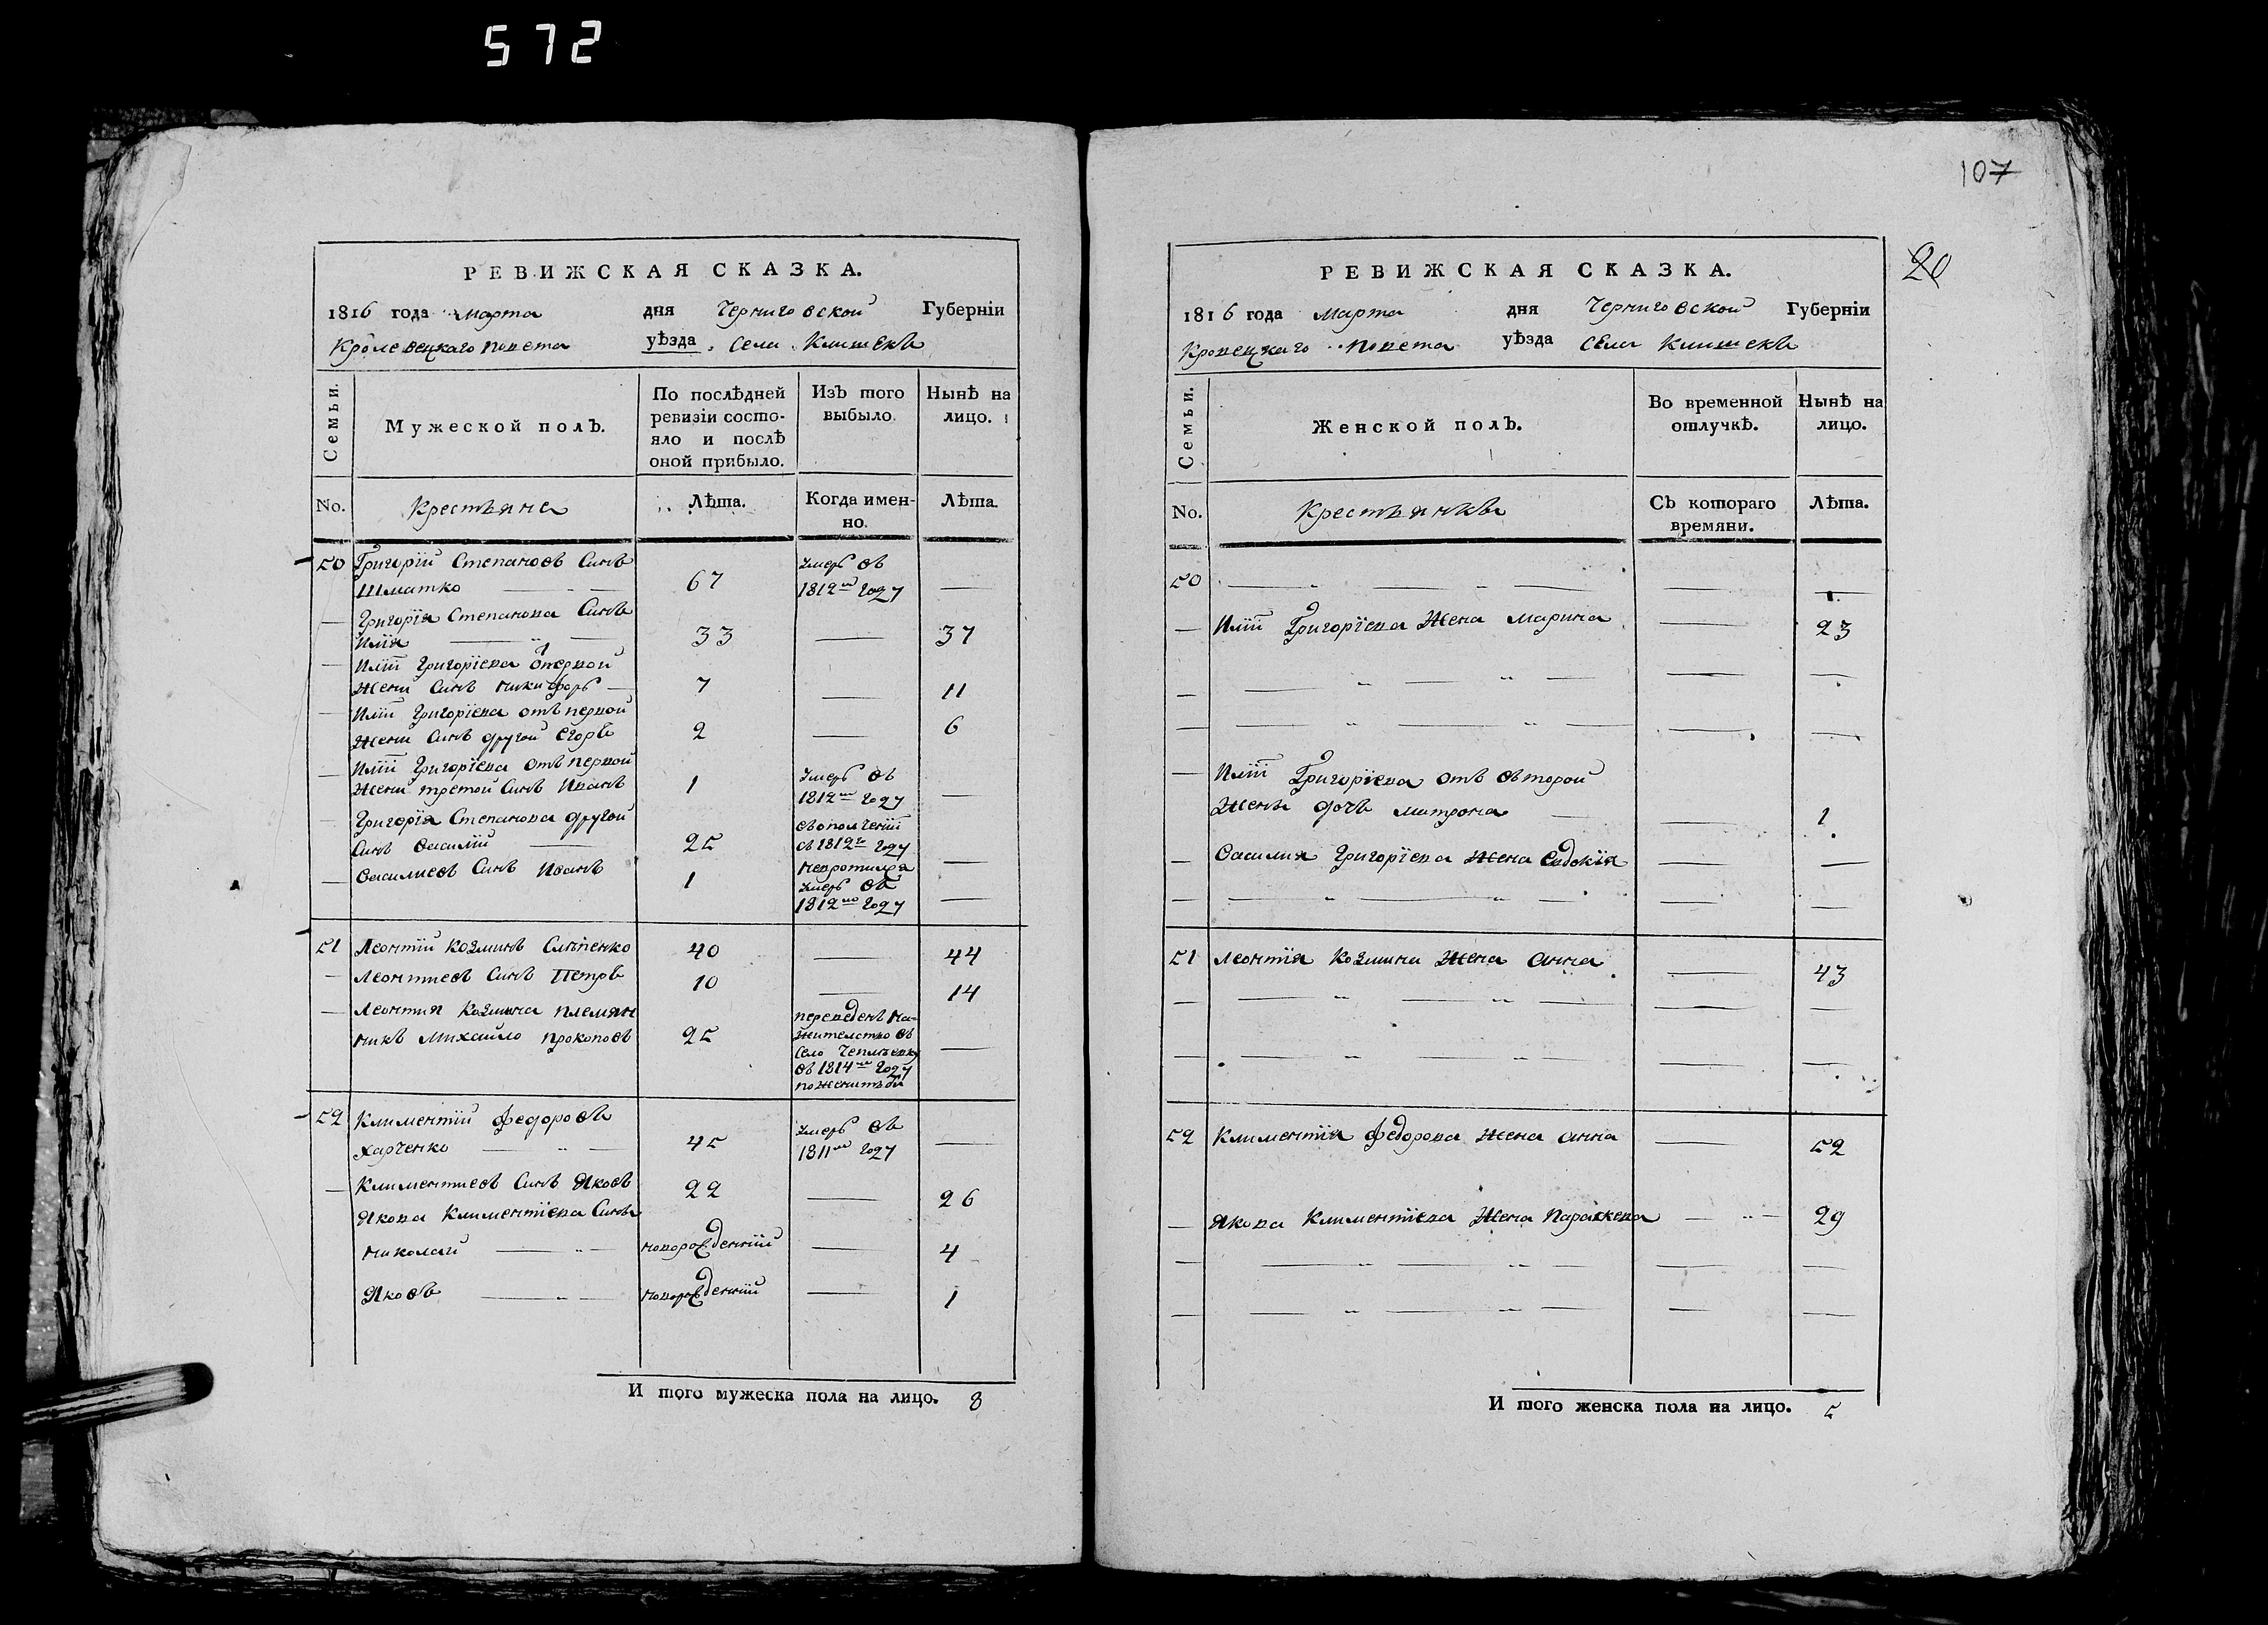 572
РЕВИЖСКАЯ СКАЗКА.
1816 года Марта дня Черниговской Губерніи
Кролевецкаго повета уѣзда Села Клишекъ
Семьи.
Мужеской полъ.
По послѣдней ревизіи состояло и послѣ оной прибыло.
Изъ того выбыло.
Нынѣ на лицо.
No.
Крестъяне
Лѣта.
Когда именно.
Лѣта.
50 Григорій Степановъ Синъ
Шматко 67 умеръ въ 1812м году —
— Григорія Степанова Синъ
Илія 33 — 37
— Иліи Григоріева отпервой
жени Синъ Никифоръ 7 — 11
— Иліи Григоріева отъ первой
жени Синъ другой Егоръ 2 — 6
— Иліи Григоріева отъ первой
жени третой Синъ Иванъ 1 умеръ въ 1812м году —
— Григорія Степанова другой
Синъ Василій 25 въополченіи съ 1812г году невротился —
— Василиевъ Синъ Иванъ 1 умеръ въ 1812мо году —
51 Леонтій Козминъ Слѣпенко 40 — 44
— Леонтиевъ Синъ Петръ 10 — 14
— Леонтия Козмина племян
никъ Михайло Прокоповъ 25 переведенъ на-
жителство въ
Село
въ 1814м году
—
52 Климентій Федоровъ
Харченко 45 умеръ въ 1811м году —
— Климентиевъ Синъ Яковъ 22 — 26
Якова Климентіева Синъ
Николай новорожденній — 4
Яковъ новорожденній — 1
И того мужеска пола на лицо. 8
107
20
РЕВИЖСКАЯ СКАЗКА.
1816 года Марта дня Черниговской Губерніи
Кровецкаго повета уѣзда Села Клишекъ
Семьи.
Женской полъ.
Во временной отлучкѣ.
Нынѣ на лицо.
No.
Крестъянкѣ
Съ котораго времяни.
Лѣта.
50 — — — —
— Иліи Григоріева Жена Марина — 23
— — — — —
— — — — —
— Иліи Григоріева отъ второй
Женѣ дочь Матрона — 1
— Василия Григоріева жена Евдокія —
— — — — —
51 Леонтія Козмина Жена Анна — 43
— — — — —
— — — — —
52 Климентія Федорова жена Анна — 52
— Якова Климентіева Жена Параскева — 29
— — — — —
— — — — —
И того женска пола на лицо. 5